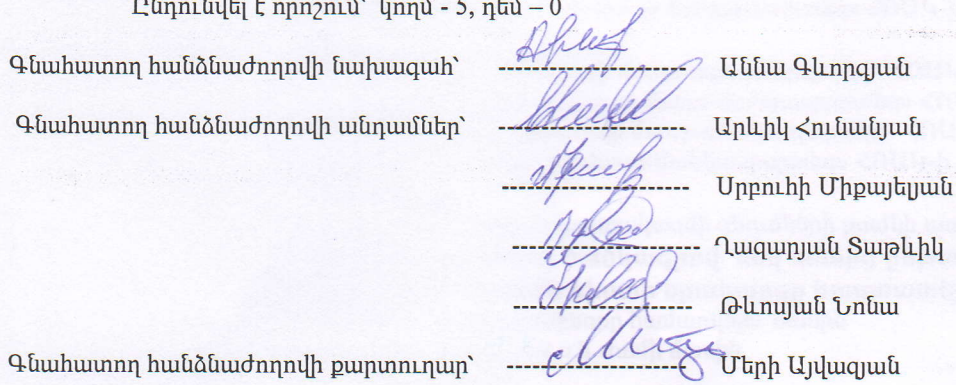 Ընդունվել է որոշում՝ կողմ - 5, դեմ – 0
Գնահատող հանձնաժողովի նախագահ՝ ------------------- Աննա Գևորգյան
Գնահատող հանձնաժողովի անդամներ՝ ------------------- Արևիկ Հունանյան
------------------- Սրբուհի Միքայելյան
------------------- Ղազարյան Տաթևիկ
------------------- Թևոսյան Նոնա
Գնահատող հանձնաժողովի քարտուղար՝ ------------------- Մերի Այվազյան